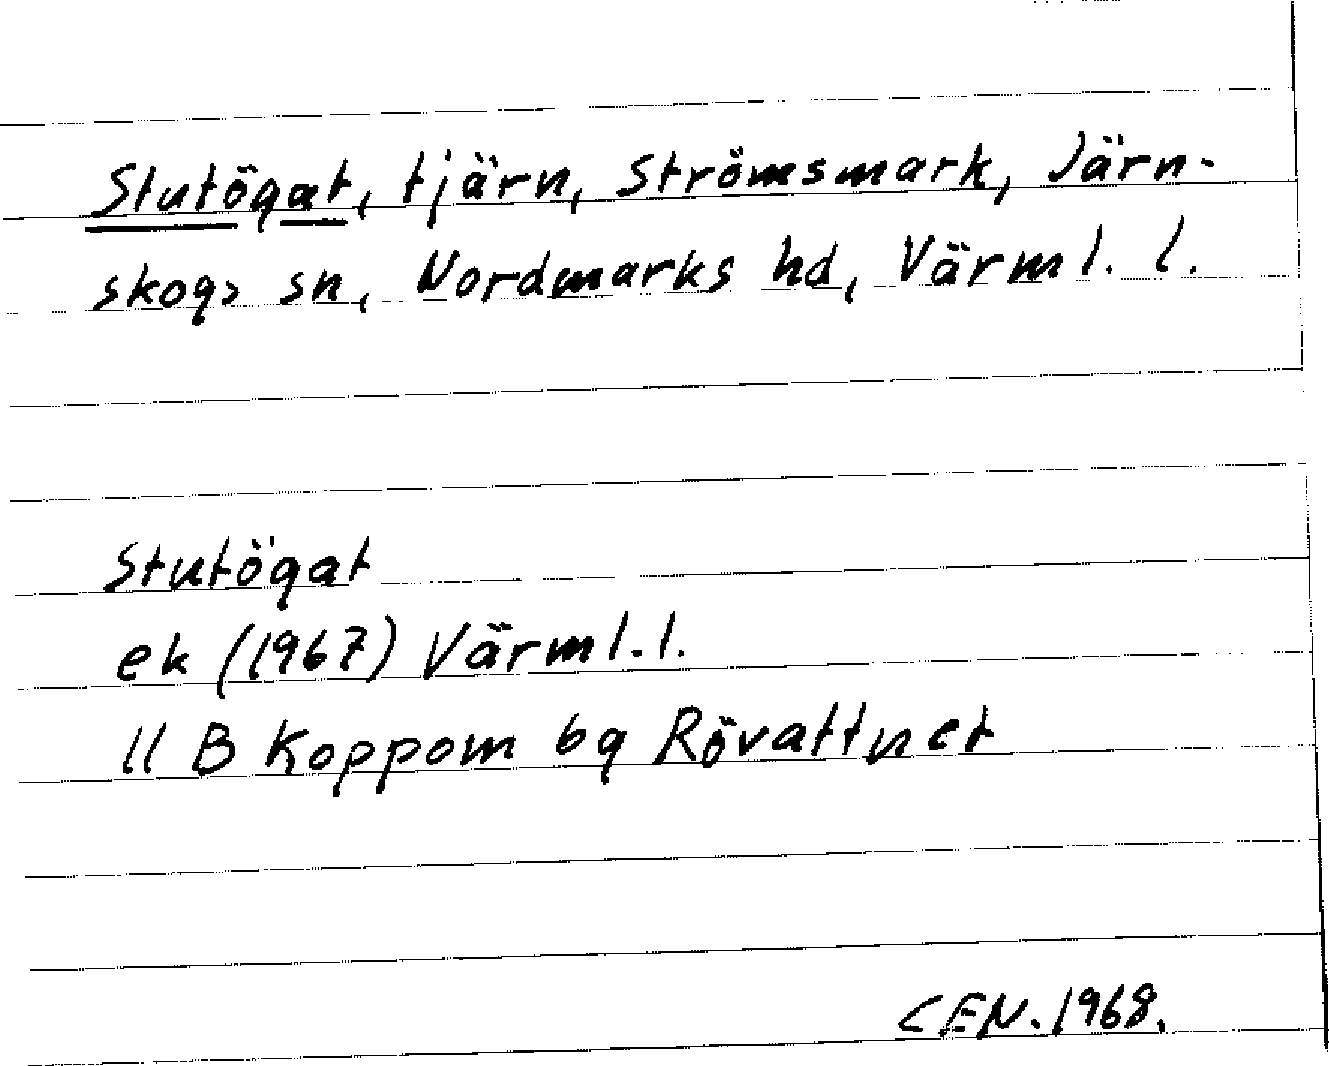 Stutögat, tjärn, Strömsmark, Järn-
skogs sn, Nordmarks hd, Värml. l.
Stutögat
ek (1967) Värml. l.
11 B Koppom 6g Rövattnet
CEN. 1968.